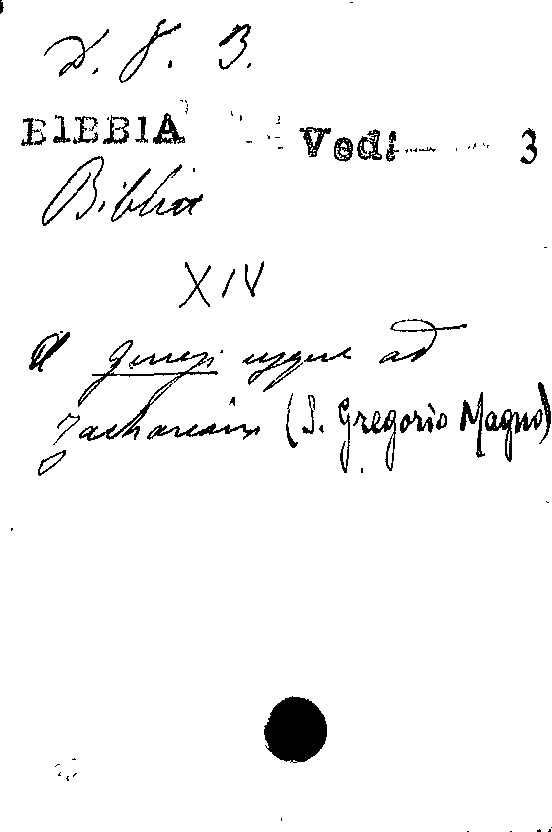 D. J. 3.
BIBBIA Vedi 3
Biblia
XIV
A Genesi usque ad
Zachariam (S. Gregorio Magno)